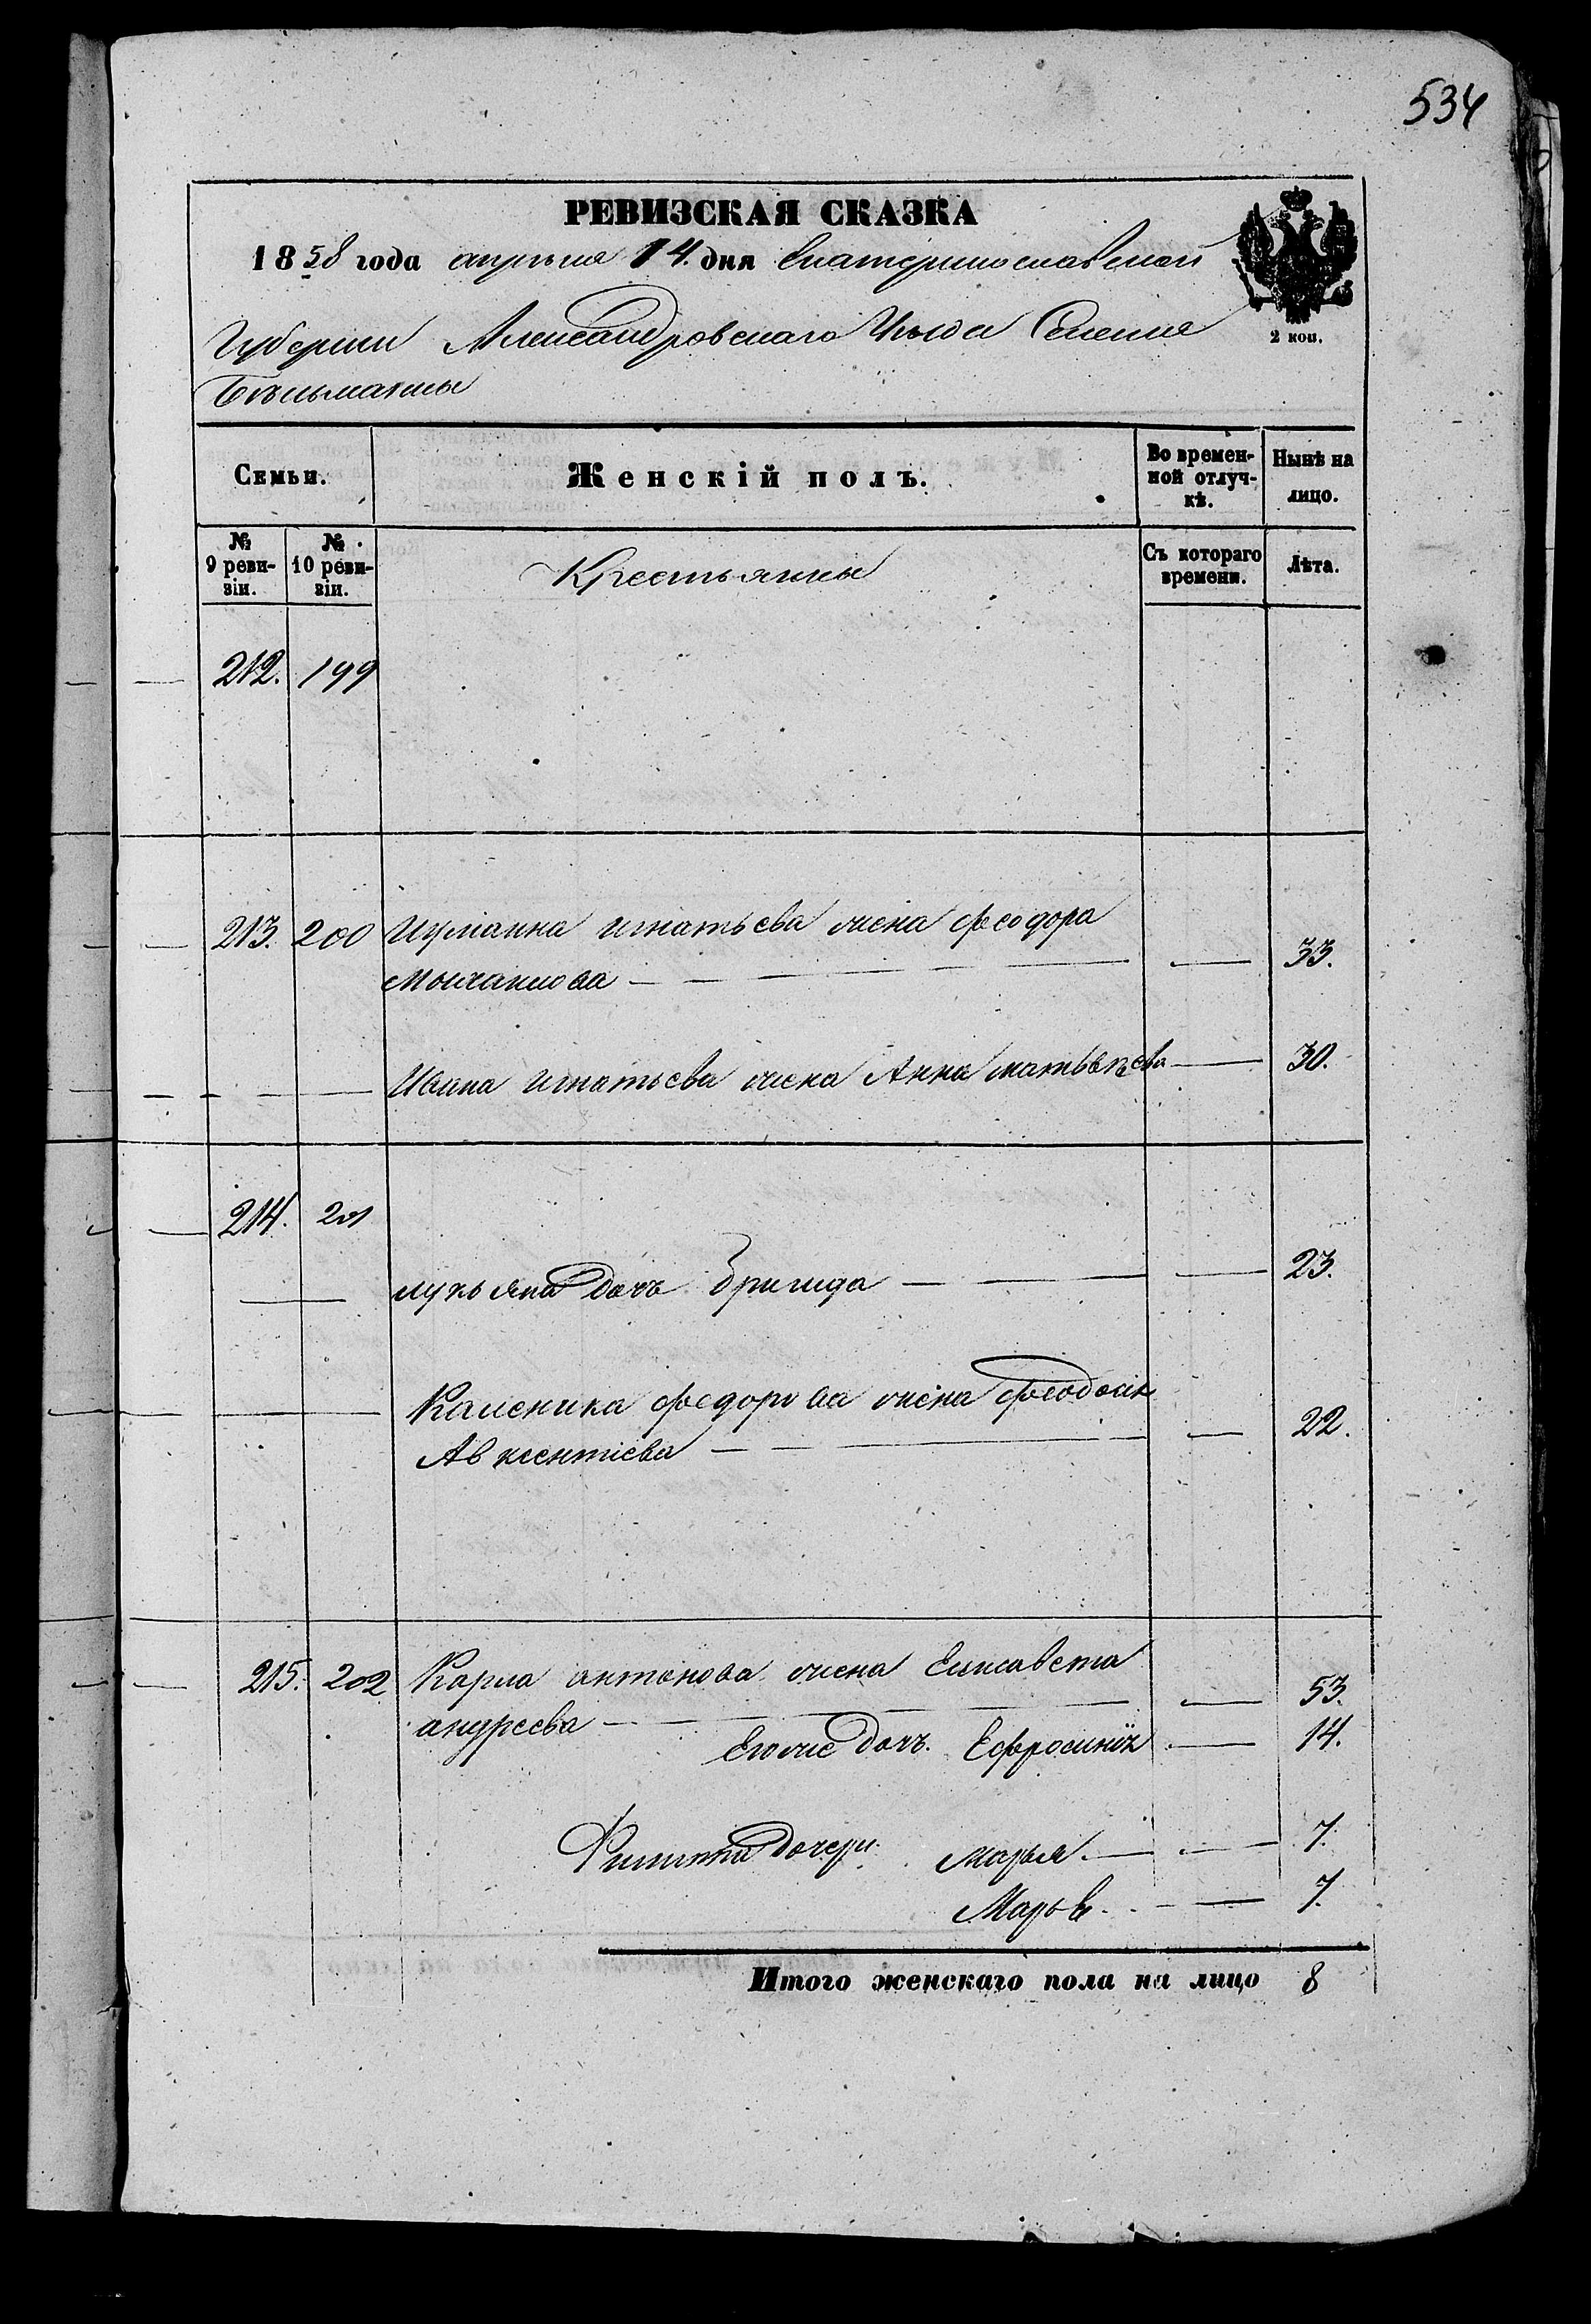 534
РЕВИЗСКАЯ СКАЗКА
1858 года апрѣля 14. дня Екатеринославской
2 коп.
Губерніи Александровскаго Уѣзда Селенія
Бѣльманки
Семьи.
Женскій полъ.
Во времен-
ной отлуч-
кѣ.
Нынѣ на
лицо.
№
9 реви-
зіи.
№
10 реви-
зіи.
Съ котораго
времени.
Лѣта.
Крестьянки
212. 199
213. 200 игнатьева жена феодора
33.
Ивана игнатьева жена Анна матвѣева 30.
214. 201
лукьяна дочь Бригида 23.
Каленика федорова жена феодосія
Авксентіева 22.
215. 202 Карла антонова жена Елисавета
андреева 53.
Егоже дочь. Ефросинія 14.
Филиппа дочери. Марья 7.
Марья 7.
Итого женскаго пола на лицо 8